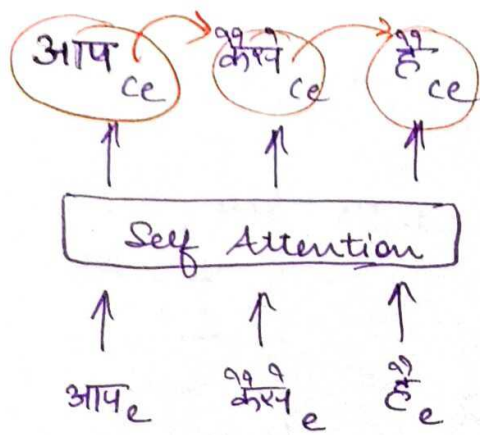 आप ce कैसे ce हैं ce
Self Attention
आप e कैसे e हैं e